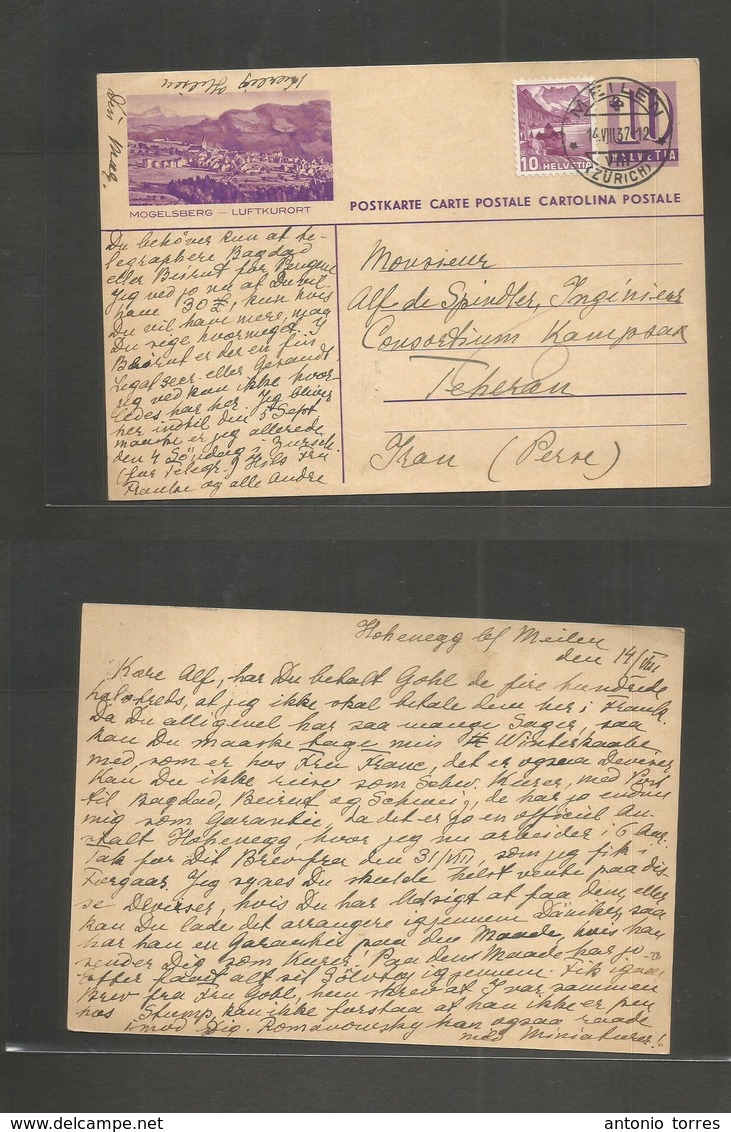 Kærlig Hilsen
Din Mag,
MOGELSBERG — LUFTKURORT
MEILEN
14.VIII.37-12
VIII
(ZÜRICH)
10 HELVETIA
10
HELVETIA
POSTKARTE CARTE POSTALE CARTOLINA POSTALE
Du behöver kun at te-
legraphere Bagdad
eller Beirut for Pengene
Jeg ved jo nu at Du vil
have 30 £, kun hvis
Du vil have mere, maa
Du sige hvormeget. I
Beirut er der en fin
Legat.secr. eller Gesandt.
jeg ved kun ikke hvor-
ledes har her. Jeg bliver
her indtil den 5t Sept
maaske er jeg allerede
den 4 Söndag i Zürich.
(for Telegr.) Hils Fru
og alle Andre
Monsieur
Alf de Spindler, Ingénieur
Consortium Kampsax
Teheran
Iran (Perse)
Hohenegg b/ Meilen
den 14/VIII
Kære Alf, har Du betalt Gohl de fire hundrede
at jeg ikke skal betale dem her i Frank.
Da Du alligevel har saa mange Sager, saa
kan Du maaske tage min Winterkaabe
med, som er hos Fru Franc, det er ogsaa Deviser
Kan Du ikke rejse som Schw. Kurer, med Post
til Bagdad, Beirut og Schweiz, de har jo endnu
mig som Garantie, da det er jo en officiel An-
stalt Hohenegg, hvor jeg nu arbeider i 6 Aar.
Tak for Dit Brev fra den 31/VII, som jeg fik i
Forgaars. Jeg synes Du skulde helst vente paa dis-
se Deviser, hvis Du har Udsigt at faa dem, eller
kan Du lade det arrangere igjennem Däniker, saa
har han en Garantie paa den Maade, hvis han
sender Dig som Kurer. Paa den Maade har jo
faaet alt sit Sölvtöj igjennem. Fik igaar
Brev fra Fru Gohl, hun skrev at I var sammen
hos Stump, kan ikke forstaa at han ikke er pæn
imod Dig. Romanowsky kan ogsaa raade
med Miniaturer!
antonio torres